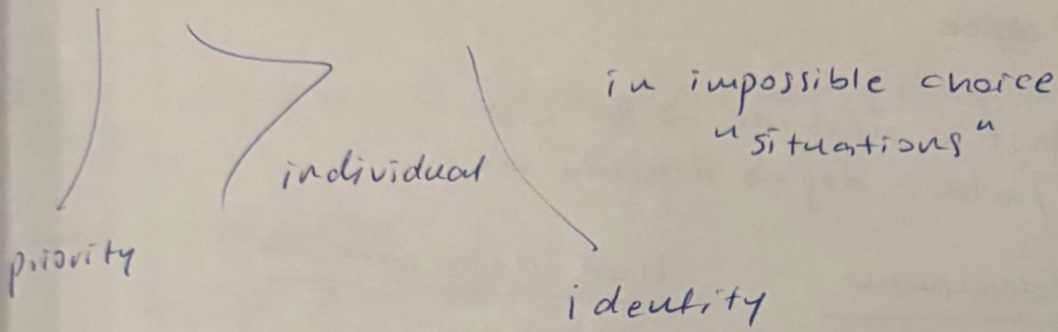 in impossible choice
"situations"
individual
priority
identity